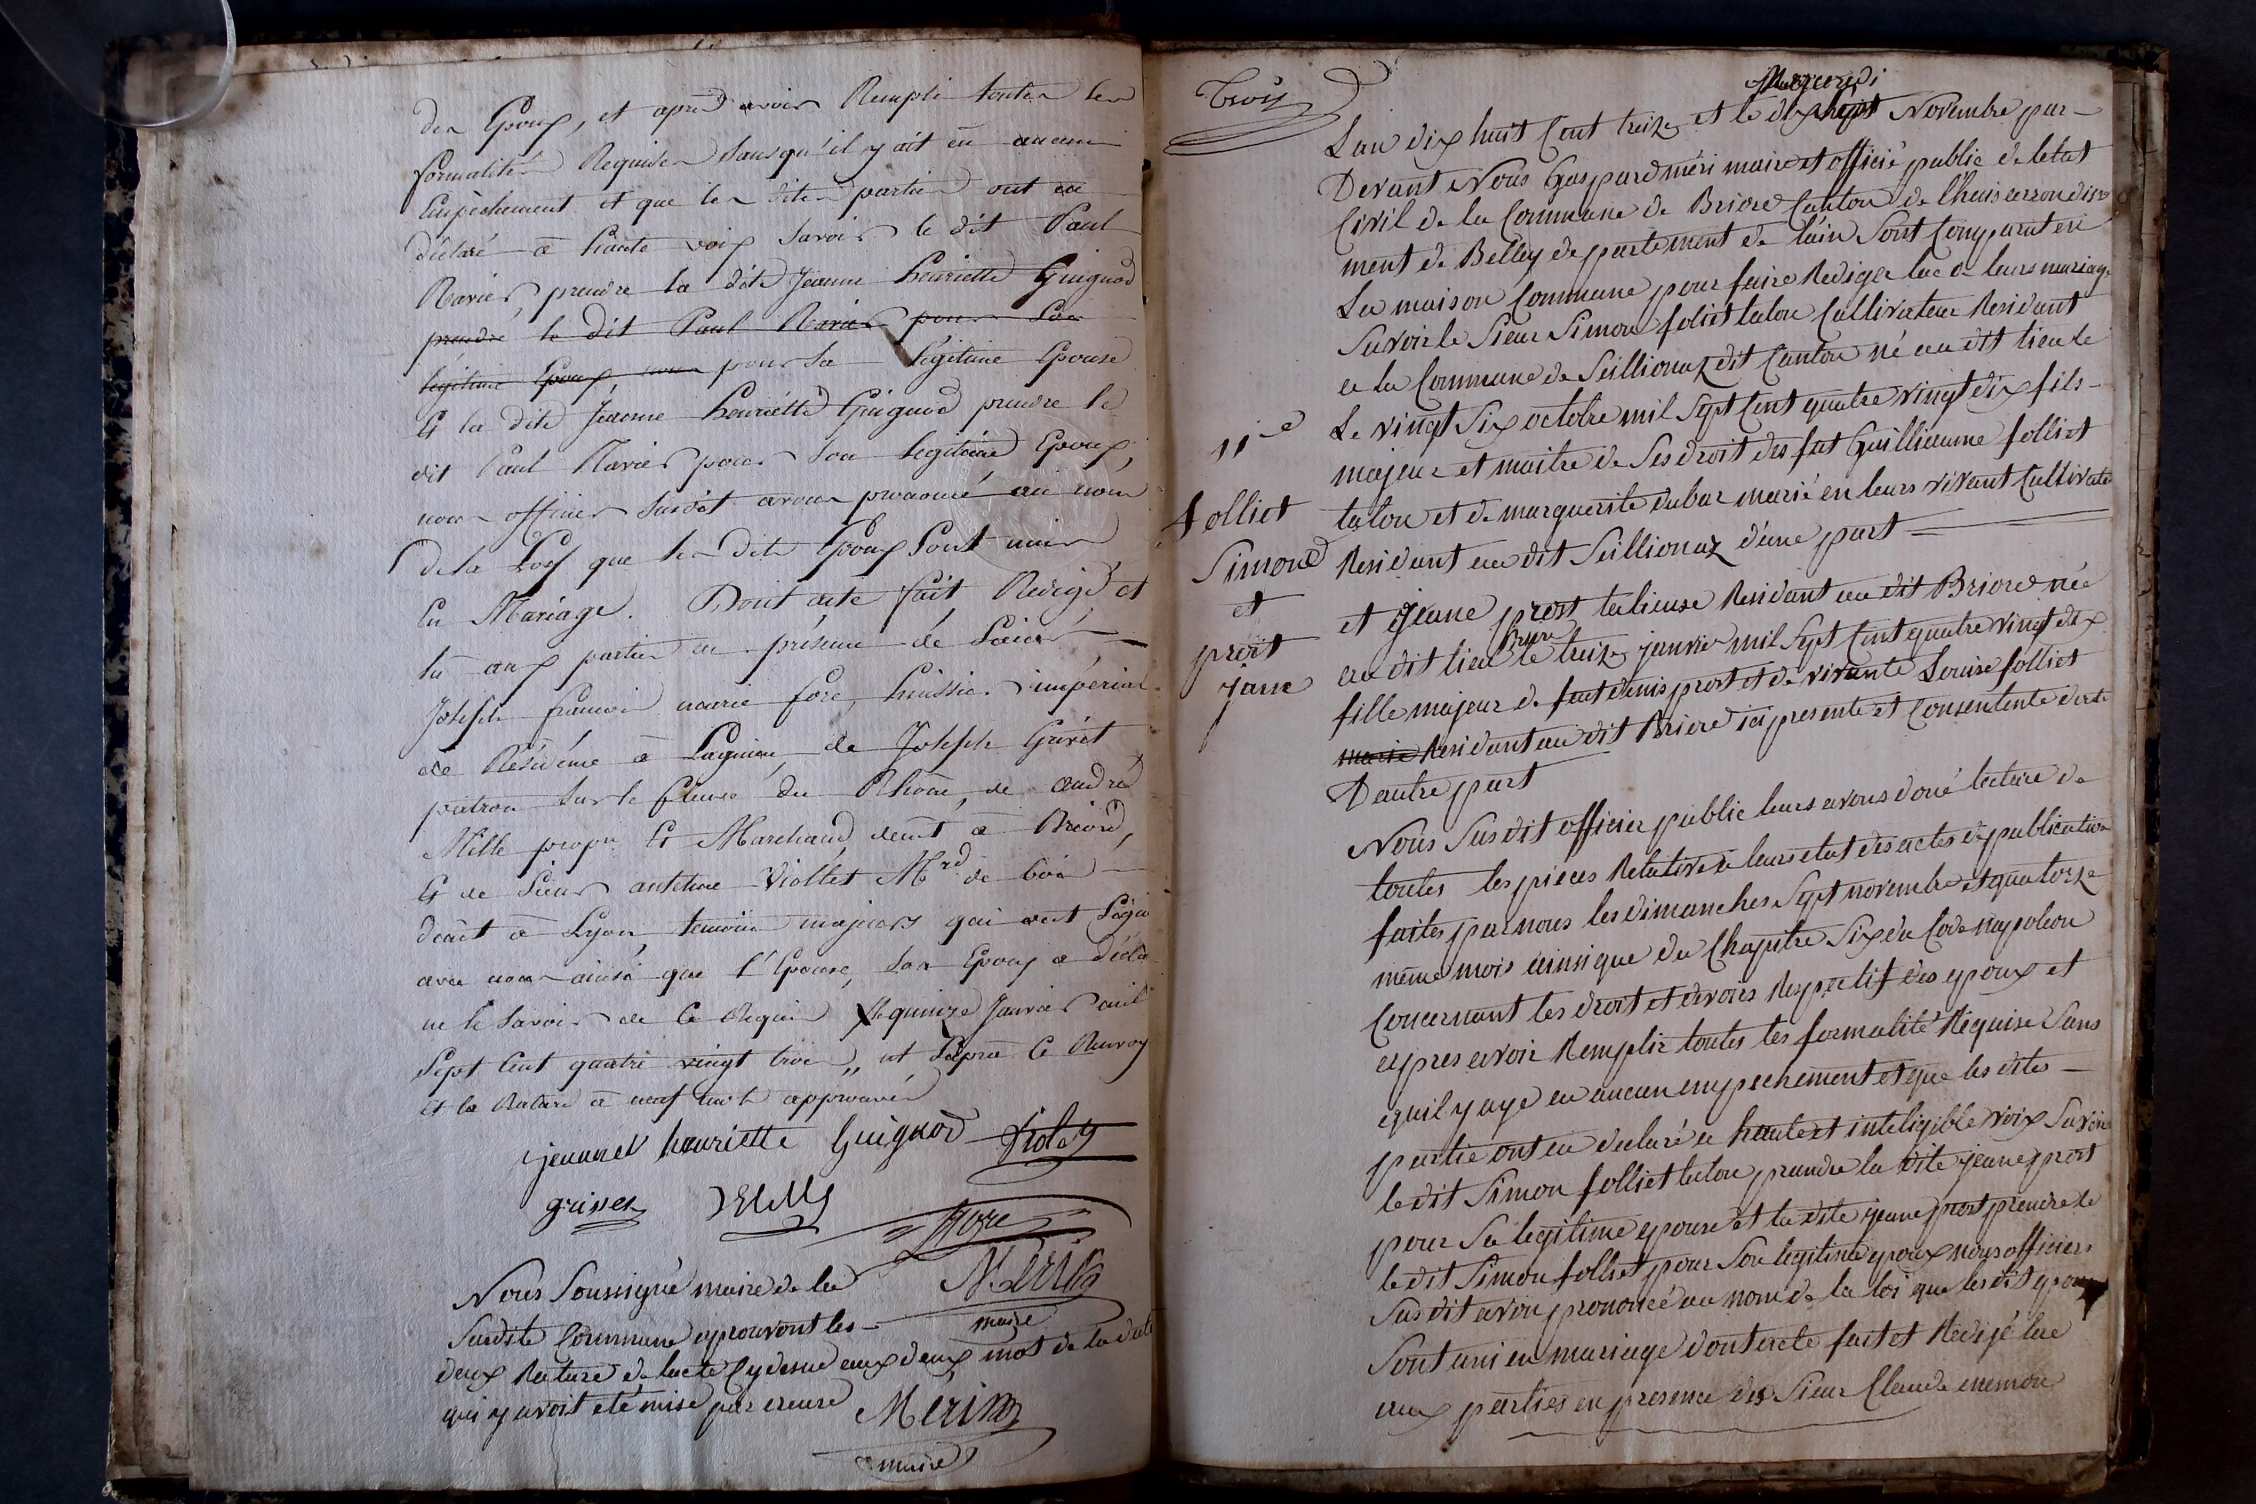 des Epoux, et apres avoir Rempli toutes les
formalités Requises sans qu'il y ait eû aucun
Empêchement et que les dites parties ont eu
déclaré à haute voix savoir le dit Paul
Ravier, prendre la dite Jeanne henriette Guignod
prendre le dit Paul Ravier pour son
légitime Epoux pour sa légitime Epouse
Et la dite Jeanne henriette Guignod prendre le
dit Paul Ravier pour son légitime Epoux,
nous officier susdit avons prononcé au nom
de la Loy que les dits Epoux sont unis
En Mariage. Dont acte fait Rédigé et
lu aux parties en présence de Sieur
Joseph françois marie fore, huissier impérial
de Résidence à Lagnieu, de Joseph Grivet
patron sur le fleuve du Rhône, de andré
Mille propre Et Marchand demt à Briord,
Et de Sieur anthelme Viollet Mrd de bois
demt à Lyon, temoins majeurs qui ont Signé
avec nous ainsi que l'Epouse, son Epoux a déclaré
ne le savoir de ce Requis le quinze Janvier mil
Sept Cent quatre vingt trois, et Lapres Ce Renvoy
et la Rature à neuf mots approuvés
jeanne henriette Guignod Violet
grivet Mille
fore
Nous Soussigné maire de la Merin
Susdite Commune aprouvont les maire
deux Rature de lacte Cydesue aux deux mot de la date
qui y avoit eté mise par ereure Merin
maire
Trois
Mercredi
L'an dix huit Cent treize et le dix sept Novembre par-
Devant Nous Gaspard meri maire et officié public de letat
Civil de la Commune de Briord Canton de lhuis arrondise
ment de Belley departement de lain Sont Comparut en
La maison Commune pour faire Rediger lac de leurs mariage
Savoir le Sieur Simon foliet talon Cultivateur Residant
a la Commune de Seillionaz dit Canton né au dit lieu le
Le vingt Six octobre mil Sept Cent quatre vingt dix fils
majeur et maitre de Ses droit des fut Guilliaume folliet
talon et de marguerite dubar marié en leurs vivant Cultivateur
Residant au dit Seillionaz d'une part
11e
folliet
Simond
et
prost
jane
et Jeane prost talieuse Residant au dit Briord née
au dit lieu le treize janvier mil Sept Cent quatre vingt dix
fille majeur de feut denis prost et de vivante Louise folliet
marié Residant au dit Briord ici presente et Consentente d'arte
D'autre part
Nous Susdit officier public leurs avons doné lecture de
toutes les pieces Relative a leurs etat des actes de publication
faites par nous les dimanches Sept novembre et quatorze
même mois ainsi que du Chapitre Six du Code napoleon
Concernant les droit et devoirs Respectif des epoux et
apres avoir Remplie toutes les formalité Requise Sans
equil y aye eu aucun empechement et que les dites
partie ont eu declaré a haute et inteligible voix Savoir
le dit Simon folliet talon prandre la dite jeane prost
pour Sa legitime epouse et la dite jeane prost prendre le
le dit Simon folliet pour Son legitime epoux nous officier
Susdit avon prononcé au nom de la loi que les dit epoux
Sont uni en mariage dont acte fait et Redigé lue
aux parties en presence des Sieur Claude enemon